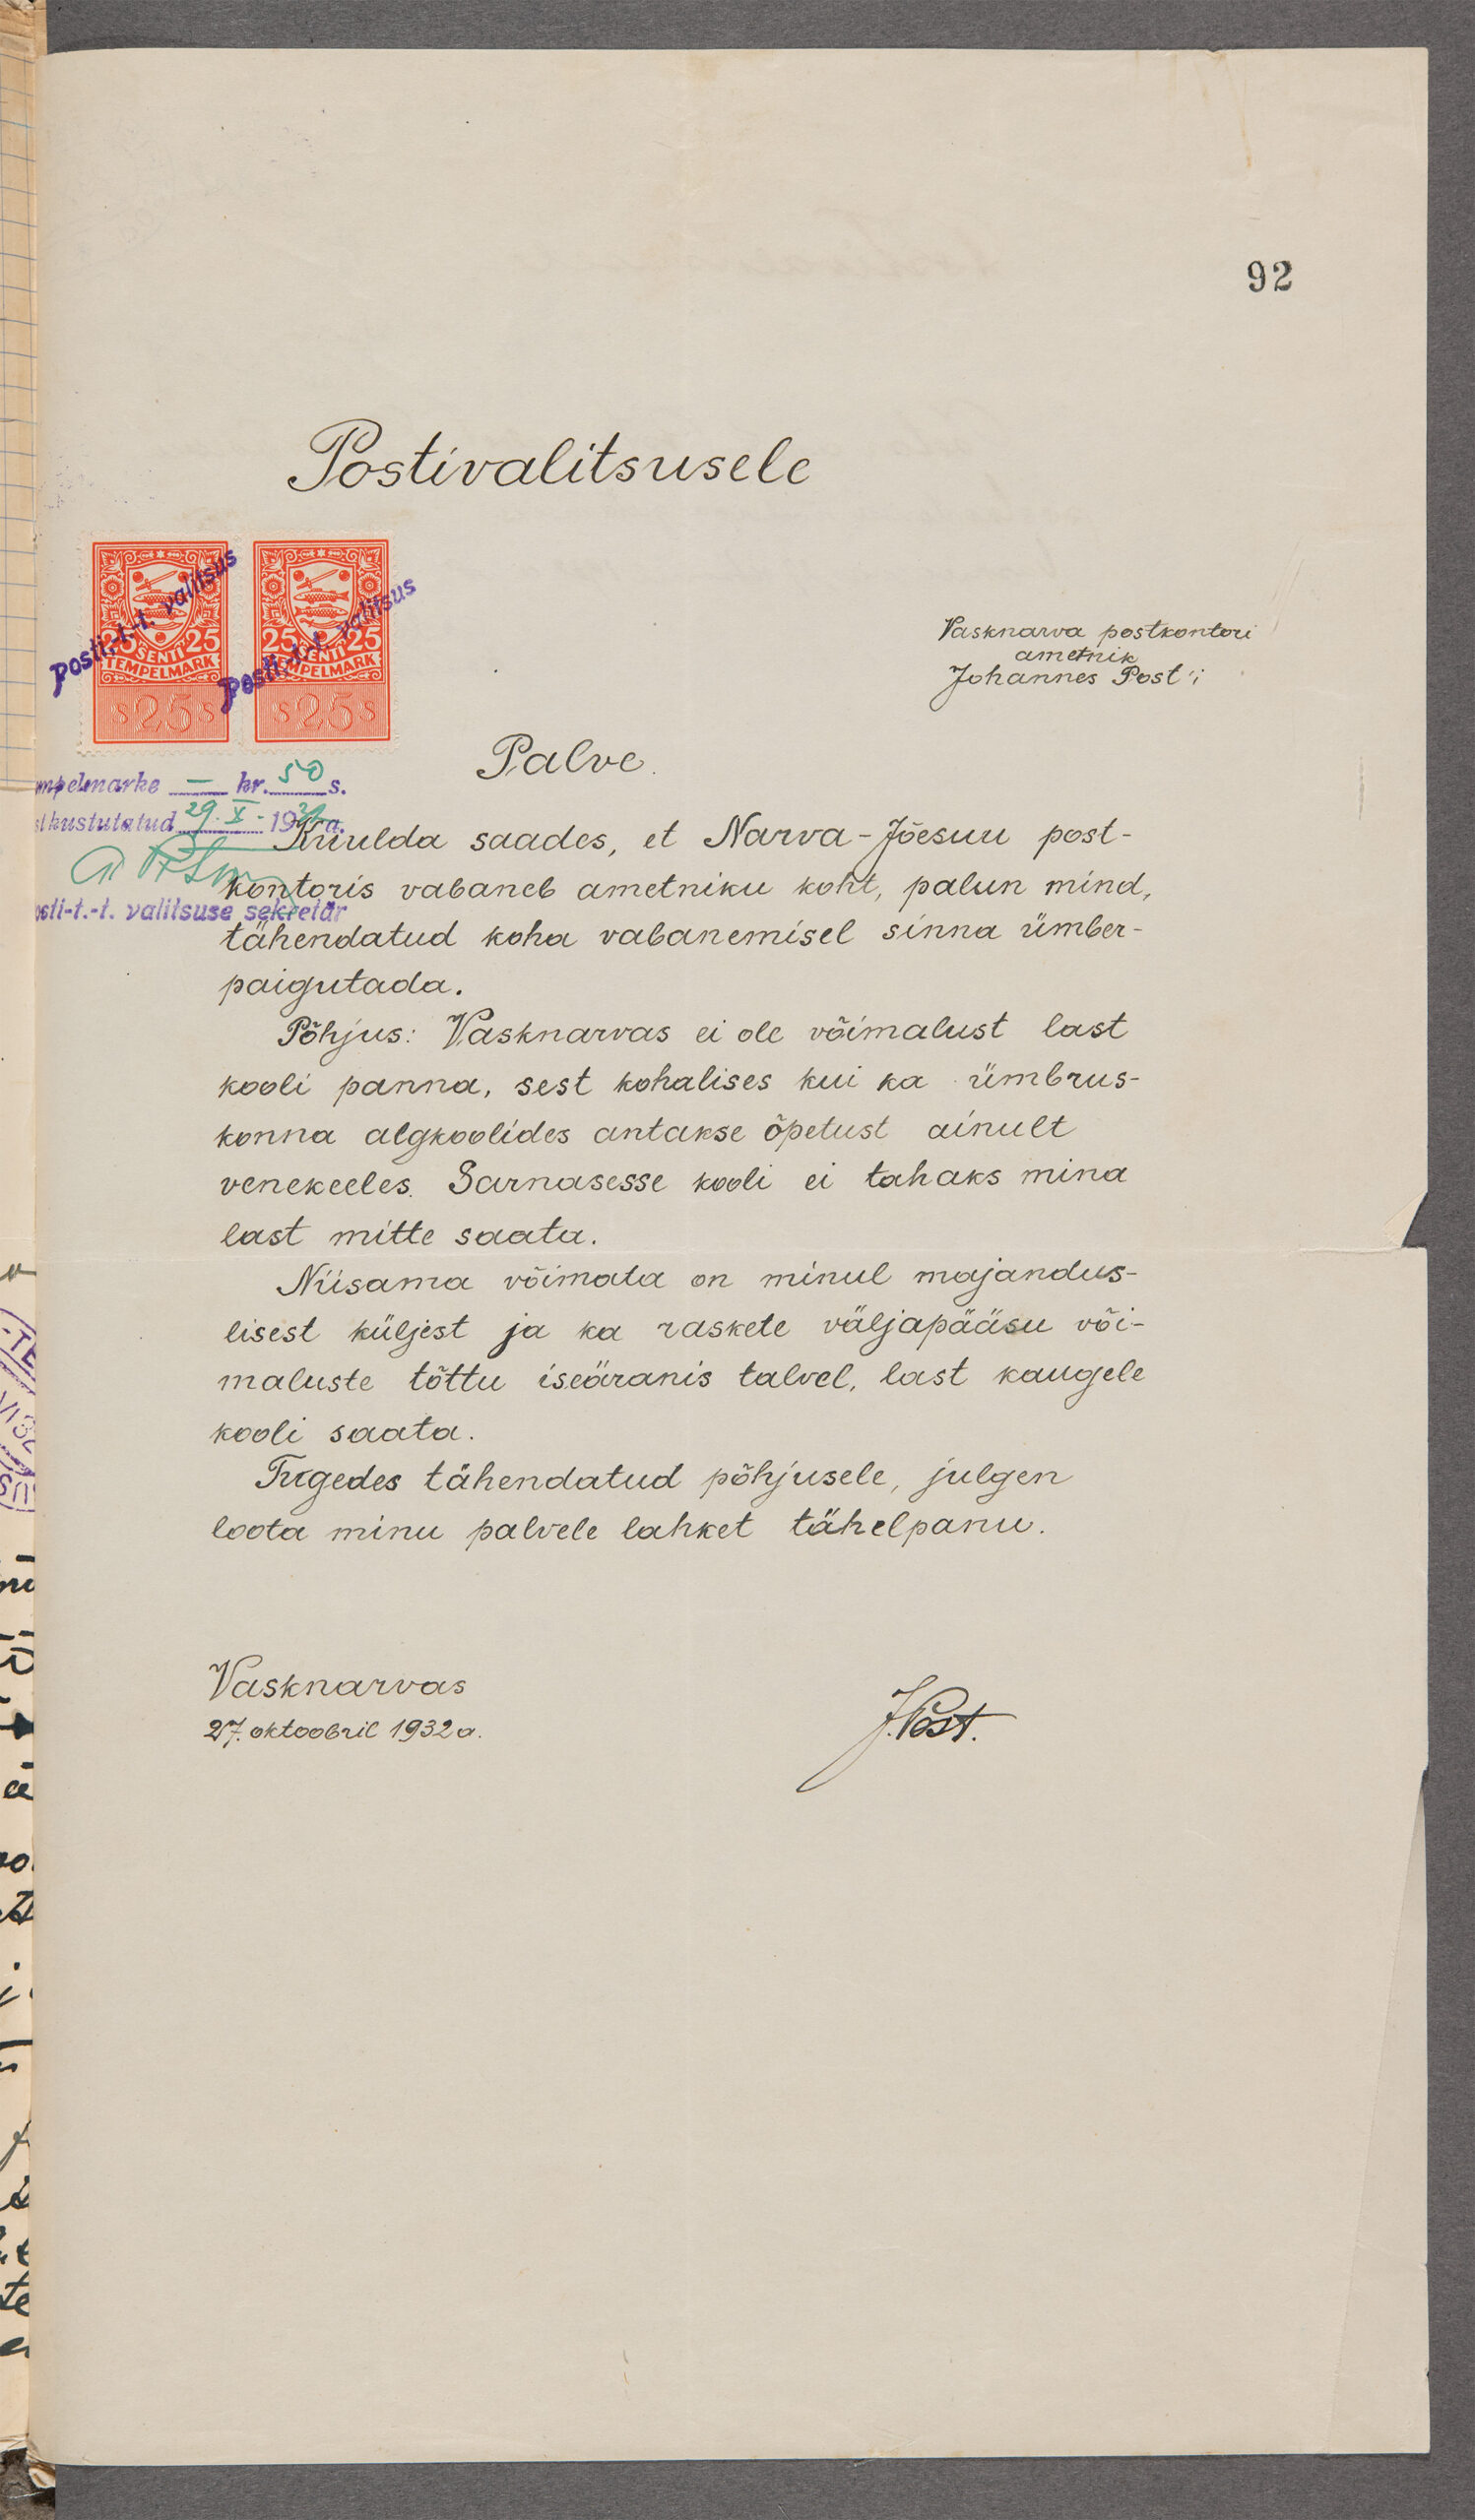 92
Postivalitsusele
posti.-t.-t. valitsus
posti.-t.-t. valitsus
25 25
SENTI
TEMPELMARK
s 25 s
25 25
SENTI
TEMPELMARK
s 25 s
Vasknarva postkontori
ametnik
Johannes Post'i
Palve.
mpelmarke — kr. 50 s.
kustutatud 29. X - 1932 a.
osti-t.-t. valitsuse sekretär
Kuulda saades, et Narva-Jõesuu post-
kontoris vabaneb ametniku koht, palun mind,
tähendatud koha vabanemisel sinna ümber-
paigutada.
Põhjus: Vasknarvas ei ole võimalust last
kooli panna, sest kohalises kui ka ümbrus-
konna algkoolides antakse õpetust ainult
venekeeles. Sarnasesse kooli ei tahaks mina
last mitte saata.
Niisama võimata on minul majandus-
lisest küljest ja ka raskete väljapääsu või-
maluste tõttu iseäranis talvel, last kaugele
kooli saata.
Tugedes tähendatud põhjusele, julgen
loota minu palvele lahket tähelpanu.
Vasknarvas
27. oktoobril 1932 a.
J. Post.